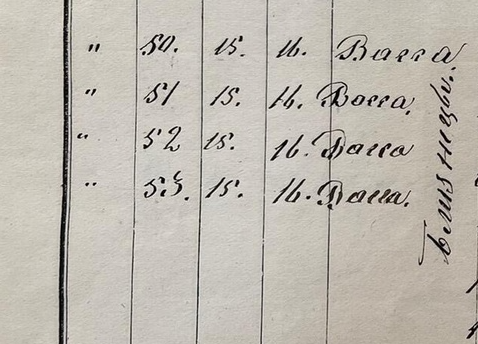 " 50. 15. 16. Васса
" 51 15. 16. Васса.
" 52 15. 16. Васса
" 53. 15. 16. Васса.
Близнецы.